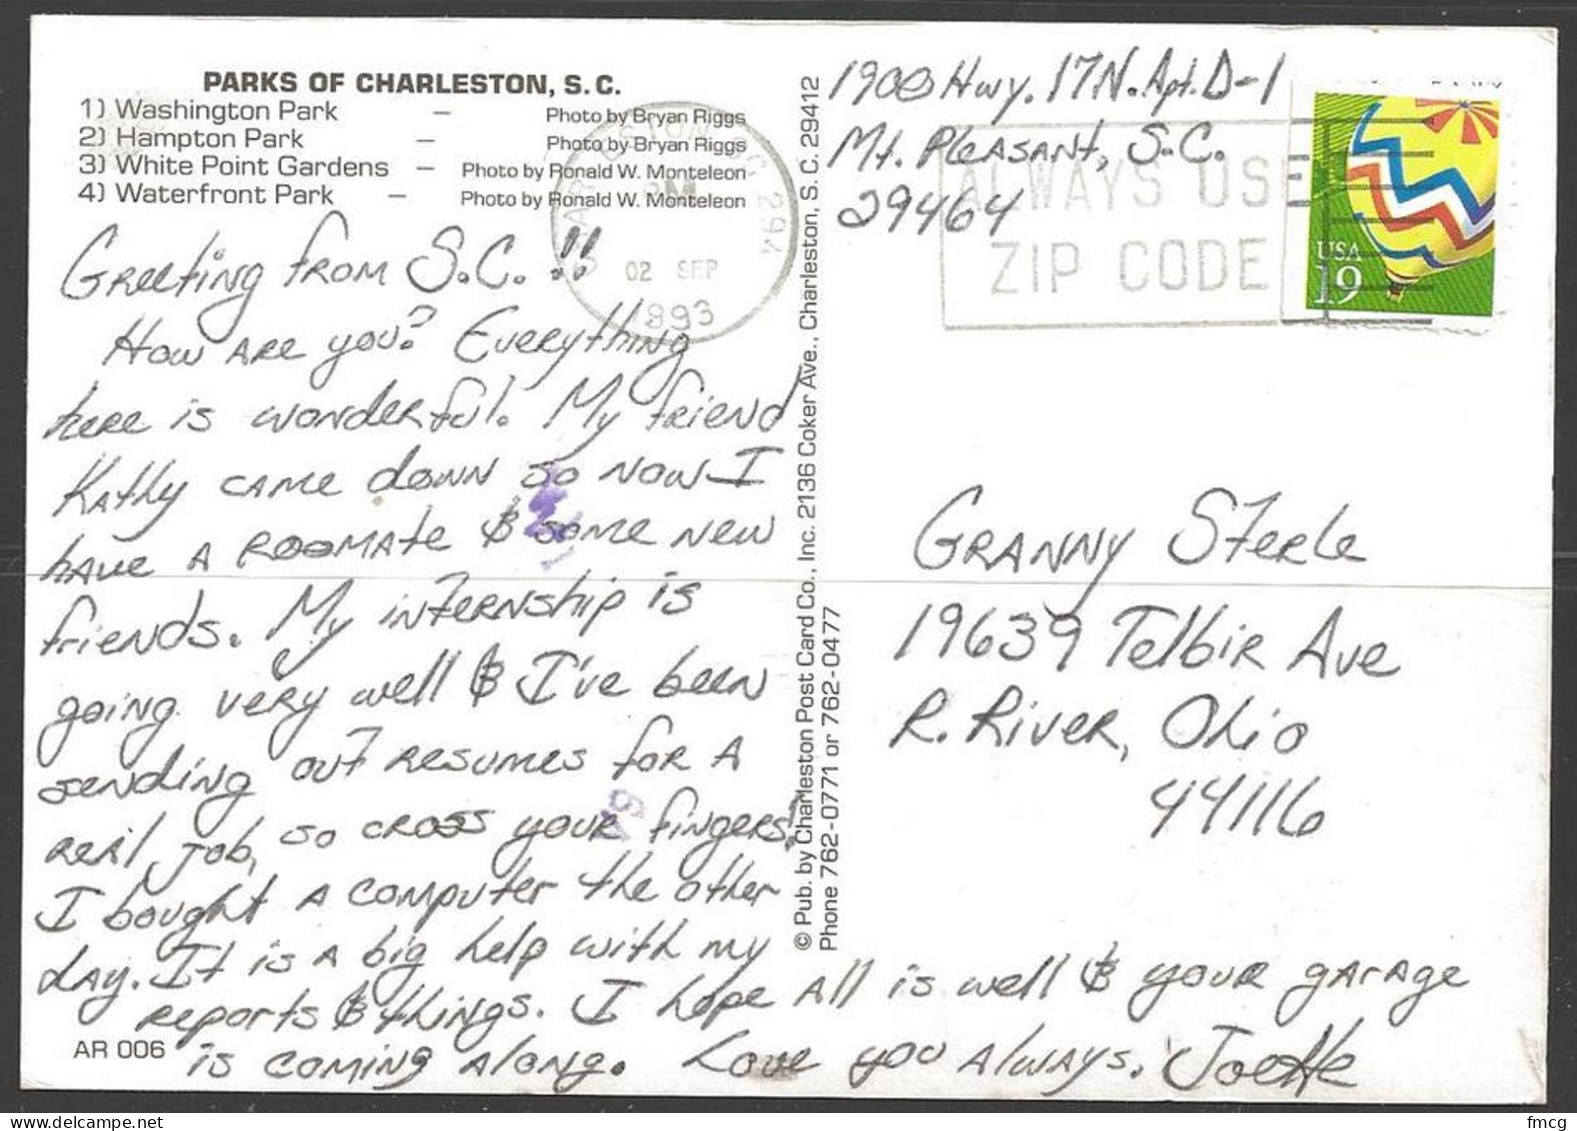 PARKS OF CHARLESTON, S.C.
1) Washington Park – Photo by Bryan Riggs
2) Hampton Park – Photo by Bryan Riggs
3) White Point Gardens – Photo by Ronald W. Monteleon
4) Waterfront Park – Photo by Ronald W. Monteleon
Greeting from S.C. !!
How are you? Everything
here is wonderful. My friend
Kathy came down so now I
have a roomate & some new
friends. My internship is
going very well & I've been
sending out resumes for a
real job, so cross your fingers!
I bought a computer the other
day. It is a big help with my
reports & things. I hope all is well & your garage
is coming along. Love you always. Joette
AR 006
© Pub. by Charleston Post Card Co., Inc. 2136 Coker Ave., Charleston, S.C. 29412
Phone 762-0771 or 762-0477
1900 Hwy. 17N. Apt. D-1
Mt. Pleasant, S.C.
29464
ALWAYS USE
ZIP CODE
02 SEP
1993
PM
294
USA
19
Granny Sterle
19639 Telbir Ave
R. River, Ohio
44116
fmcg